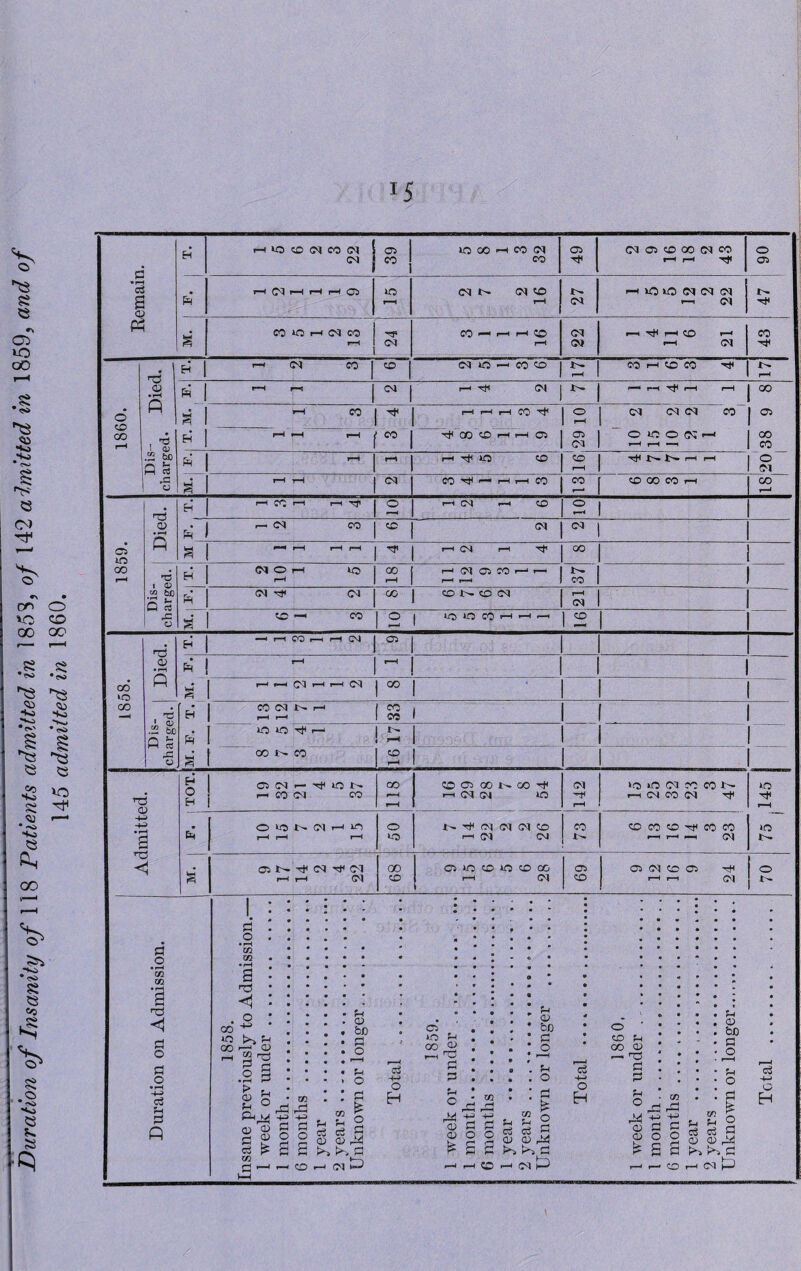 15
Duration of Insanity of 118 Patients admitted in 1858, of 142 admitted in 1859, and of
145 admitted in 1860.
Duration on Admission. Admitted. 1858. 1859. 1860. Remain.
Dis-charged. Died. Dis-charged. Died. Dis-charged. Died.
M. F. TOT. M. F. T. M. F. T. M. F. T. M F. T. M. F. T. M. F. T. M. F. T.
1858.
Insane previously to Admission.—
1 week or under 9 10 19 8 5 13 1 1 2 2 1 1 1 1 1 1
1 month 17 15 32 7 5 12 1 1 6 4 10 1 2 3 1 1 3 2 5
6 months 14 7 21 3 4 7 2 1 3 1 1 1 1 1 1 1 1 2 5 1 6
1 year 2 2 4 1 1 1 1 1 1 2
2 years 4 1 5 1 1 1 1 2 1 3
Unknown or longer 22 15 37 2 2 3 2 5 1 3 4 1 1 3 3 13 9 22
Total 68 50 118 16 17 33 8 1 9 10 8 18 4 6 10 2 1 3 4 2 6 24 15 39
1859.
1 week or under 9 7 16 5 6 11 1 1 3 1 4
1 month 15 14 29 5 7 12 2 2 4 4 8 1 1 2 3 2 5
6 months 6 22 28 3 6 9 1 5 6 1 4 5 1 7 8
1 year 5 2 7 1 2 3 1 1 1 1 1 1 1
2 years 6 2 8 1 1 1 1 3 3 1 2 3
Unknown or longer 28 26 54 1 1 4 2 6 3 6 9 4 2 6 16 16 32
Total 69 73 142 16 21 37 8 2 10 13 16 29 10 7 17 22 27 49
1860.
1 week or under 9 6 15 6 4 10 2 1 3 1 1 2
1 month 12 13 25 8 7 15 1 1 4 5 9
6 months 16 16 32 3 7 10 2 4 6 11 5 16
1 year 9 14 23 1 1 2 2 1 3 6 12 18
2 years 3 3 1 1 2 2
Unknown or longer 24 23 47 3 1 4 21 22 43
Total 70 75 145 18 20 38 9 8 17 43 47 90